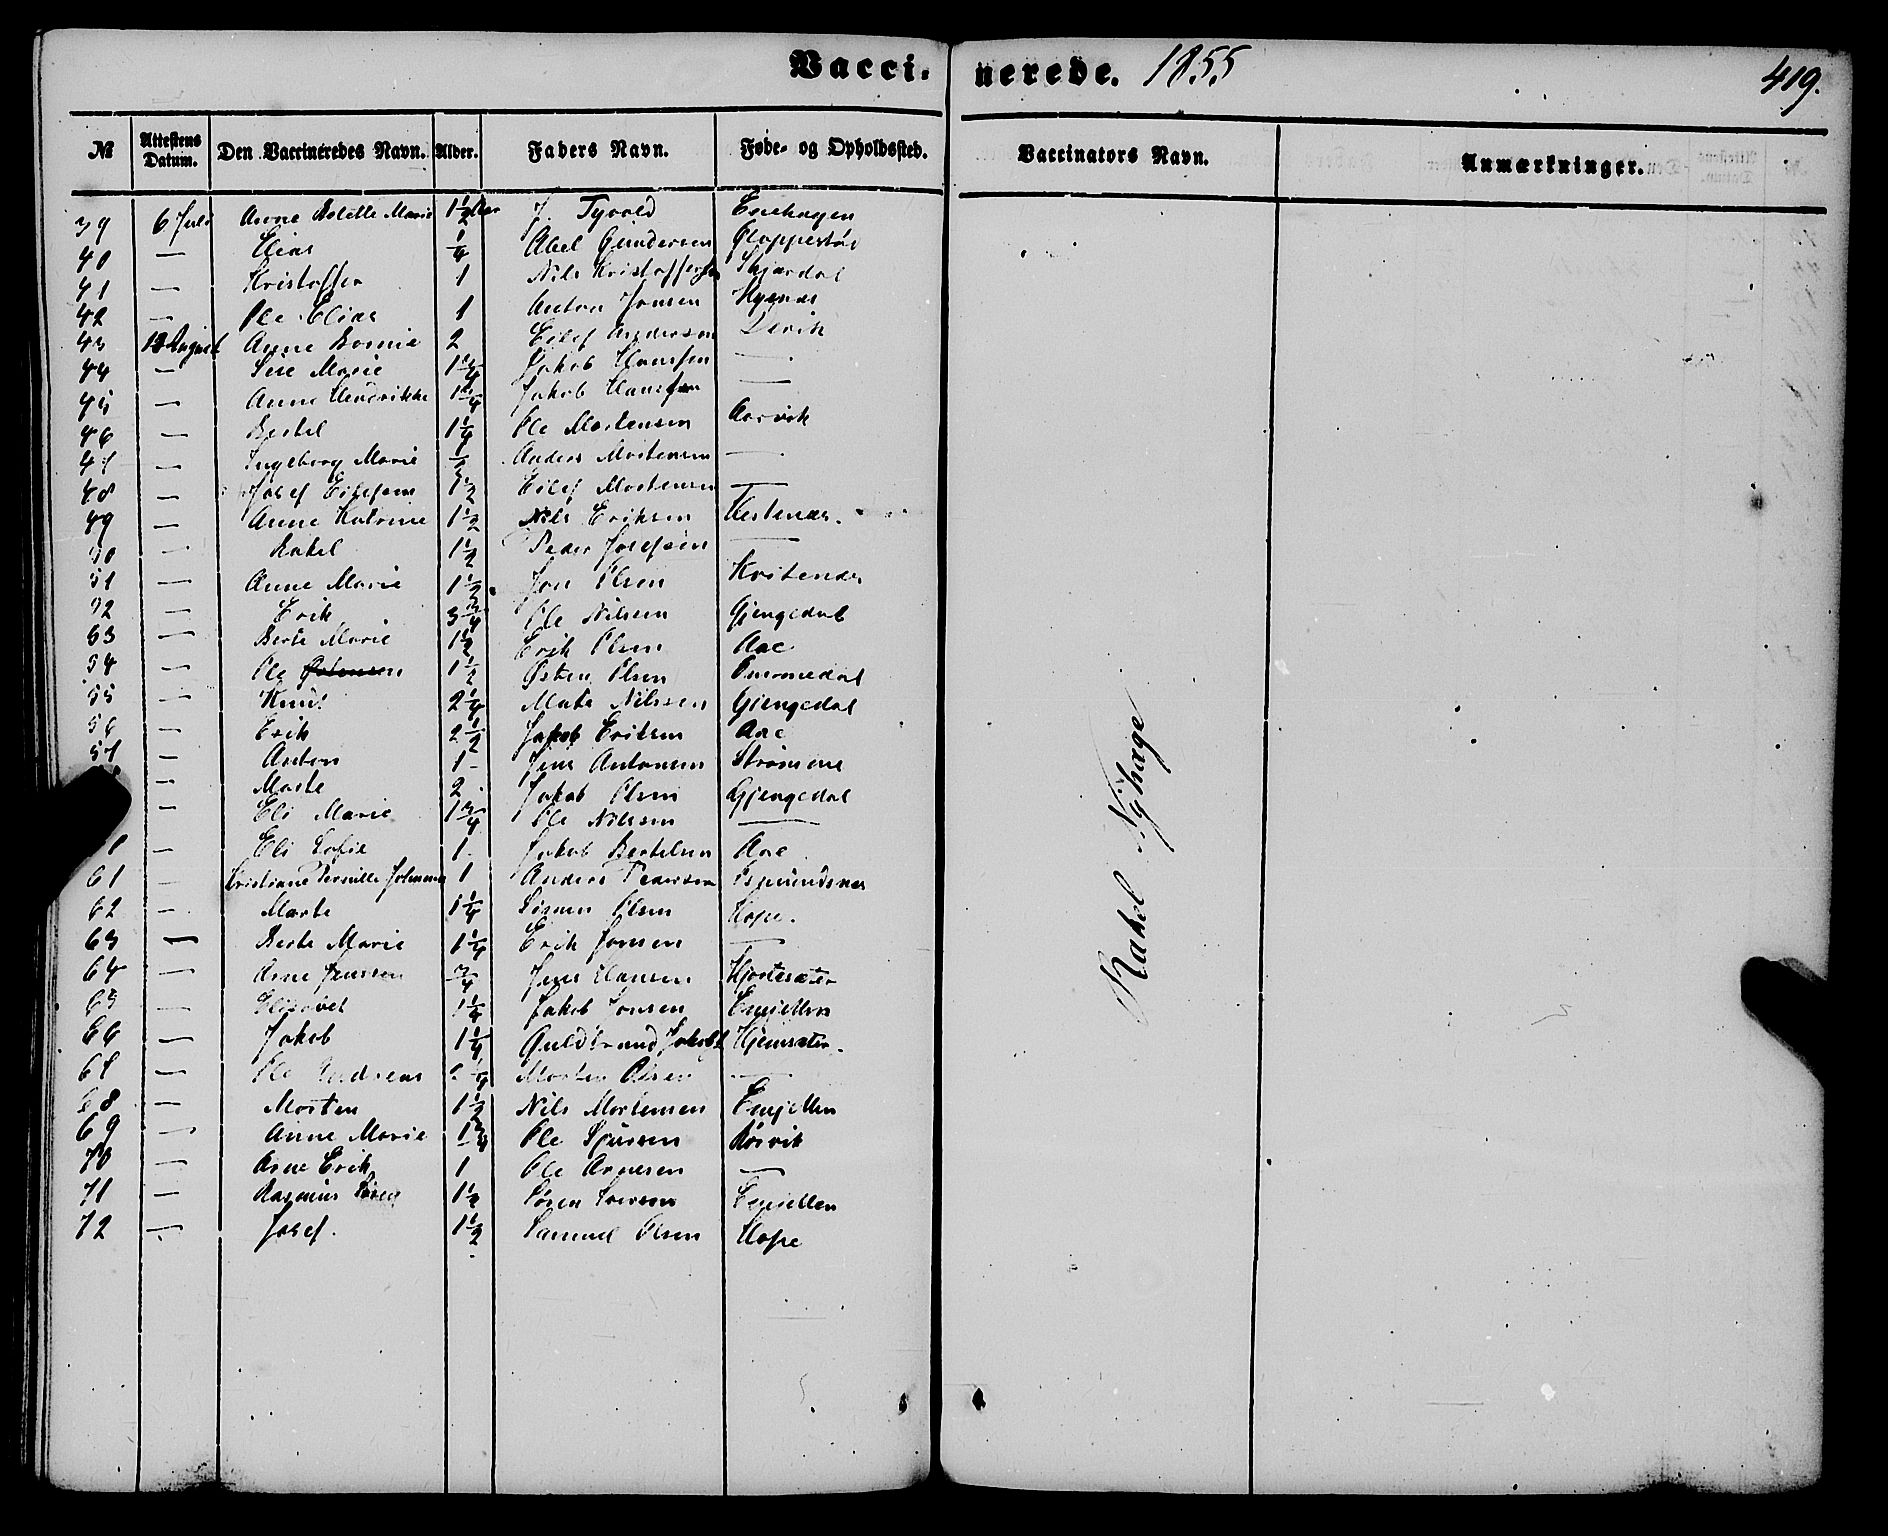 Vaccinerede. 1855 419.
№ Attestens Datum. Den Vaccineredes Navn. Alder. Faders Navn. Føde- og Opholdssted. Vaccinators Navn. Anmærkninger.
39 6 Juli Anne Marie 1½ Aar J. Tyvold
40 — Elias ¼ Abel Gundersen Gloppestøl
41 — Kristoffer 1 Nils Kristoffersen Skjærdal
42 — Ole Elias 1 Anton Jonsen Hyenæs
43 August Anne 2 Eilef Andersen
44 — Marie Jakob Hanssen —
45 — Anne Hendrikke Jakob Hanssen —
46 — Bertel 1¼ Ole Mortensen Aarvik
47 — Ingeborg Marie Anders Mortensen —
48 — Josef Eilefsen 1½ Eilef Mortensen —
49 — Anne Katrine 1½ Nils Eriksen Hestenæs.
50 — Rakel 1½ Peder Josefsen —
51 — Anne Marie 1½ Jon Olsen Kvitenæs
52 — Erik 3¾ Ole Nilsen Gjengedal
53 — Berte Marie 1½ Erik Olsen Aae
54 — Ole 1½ Østen Olsen Ommedal
55 — Knut 2¼ Mats Nilssen Gjengedal
56 — Erik 2½ Jakob Eriksen Aae
57 — Anton 1 Jens Antonsen Strømme
— Marte 2 Jakob Olsen Gjengedal
— Eli Marie 1¾ Ole Nilssen —
— Eli Sofie 1 Jakob Bertelsen Aae
61 — Kristiane Pernille Johanna 1 Anders Pedersen
62 — Marte 1¼ Simen Olsen Hope.
63 — Berte Marie 1¼ Erik Jonsen —
64 — Arne Jenssen ¾ Jens Hansen Hjortesæter
65 — Elisabet 1¼ Jakob Jonsen
66 — Jakob 1¼ Guldbrand Jakobs
67 — Ole Andreas 2¼ Morten Olsen —
68 — Morten 1½ Nils Mortensen
69 — Anne Marie 1¾ Ole Sjursen
70 — Arne Erik 1 Ole Arnesen —
71 — Rasmus Søren 1½ Søren
72 — Josef. 1½ Samuel Olsen Hope
Rakel Nyhage